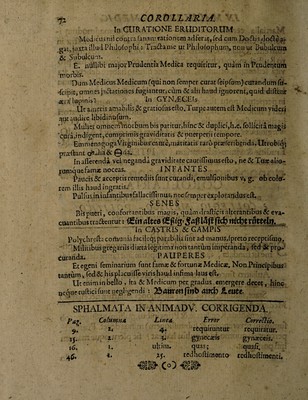 72 COROLLARIA
In CURATIONE ERUDITORUM
Medicus nil congratarum rationem adferat, sed cum Doctis doctè a-
gat, juxta illud Philosophi: Tractamur ut Philosophum, non ut Bubulcum
& Subulcum.
E. nullibi major Prudentia Medica requiritur, quàm in Prudentum
morbis.
Dum Medicus Medicum (qui non semper curat seipsum) curandum su-
scipit, urones jactationes fugiantur, cùm & alii haud ignorent, quid distent
æra lupinis!
In GYNÆCEI,
Ut uteris amabilis & gratiosus esto, Turpe autem est Medicum videri
aut audire libidinosum.
Mulier omne in morbum bis patitur, hinc & duplici, h.e. sollicitâ magis
curâ, indigent, cumprimis graviditatis & puerperii tempore.
Emmenagoga Virginibus crebrè, maritatis rarò præscribendi. Utrobiq;
præstant
In asserendâ vel negandâ graviditate cautissimus esto, ne &
jumque famæ noceas.
INFANTES
Paucis & acceptis remediis sunt curandi, emulsionibus v. g. ob colo-
rem illa haud ingratis.
Pulsus in infantibus fallacissimus, nec semper explorandus est.
SENES
Bis pueri, confortantibus magis, quàm drasticis alterantibus & eva-
cuantibus tractentur: Ein altes
In CASTRIS & CAMPIS
Polychresta
Militibus gregariis diæta legitima non tantùm imperanda, sed & pro-
curanda. PAUPERES
Et egeni seminarium sunt famæ & fortunæ Medicæ, Non Principibus
tantùm, sed & his placuisse viris haud infima laus est.
Ut enim in bello, ita & Medicum per gradus emergere decet, hinc
neque rustici sunt negligendi: Bauren sind auch Leute.
SPHALMATA IN ANIMADV. CORRIGENDA.
Pag. Columna Linea Error Correctio.
9. 1. 4. requiruntur requiratur.
15. 2. gynæceis
16. 1. ultim. quas; quasi,
46. 2. 25. redhostimento redhostimenti.